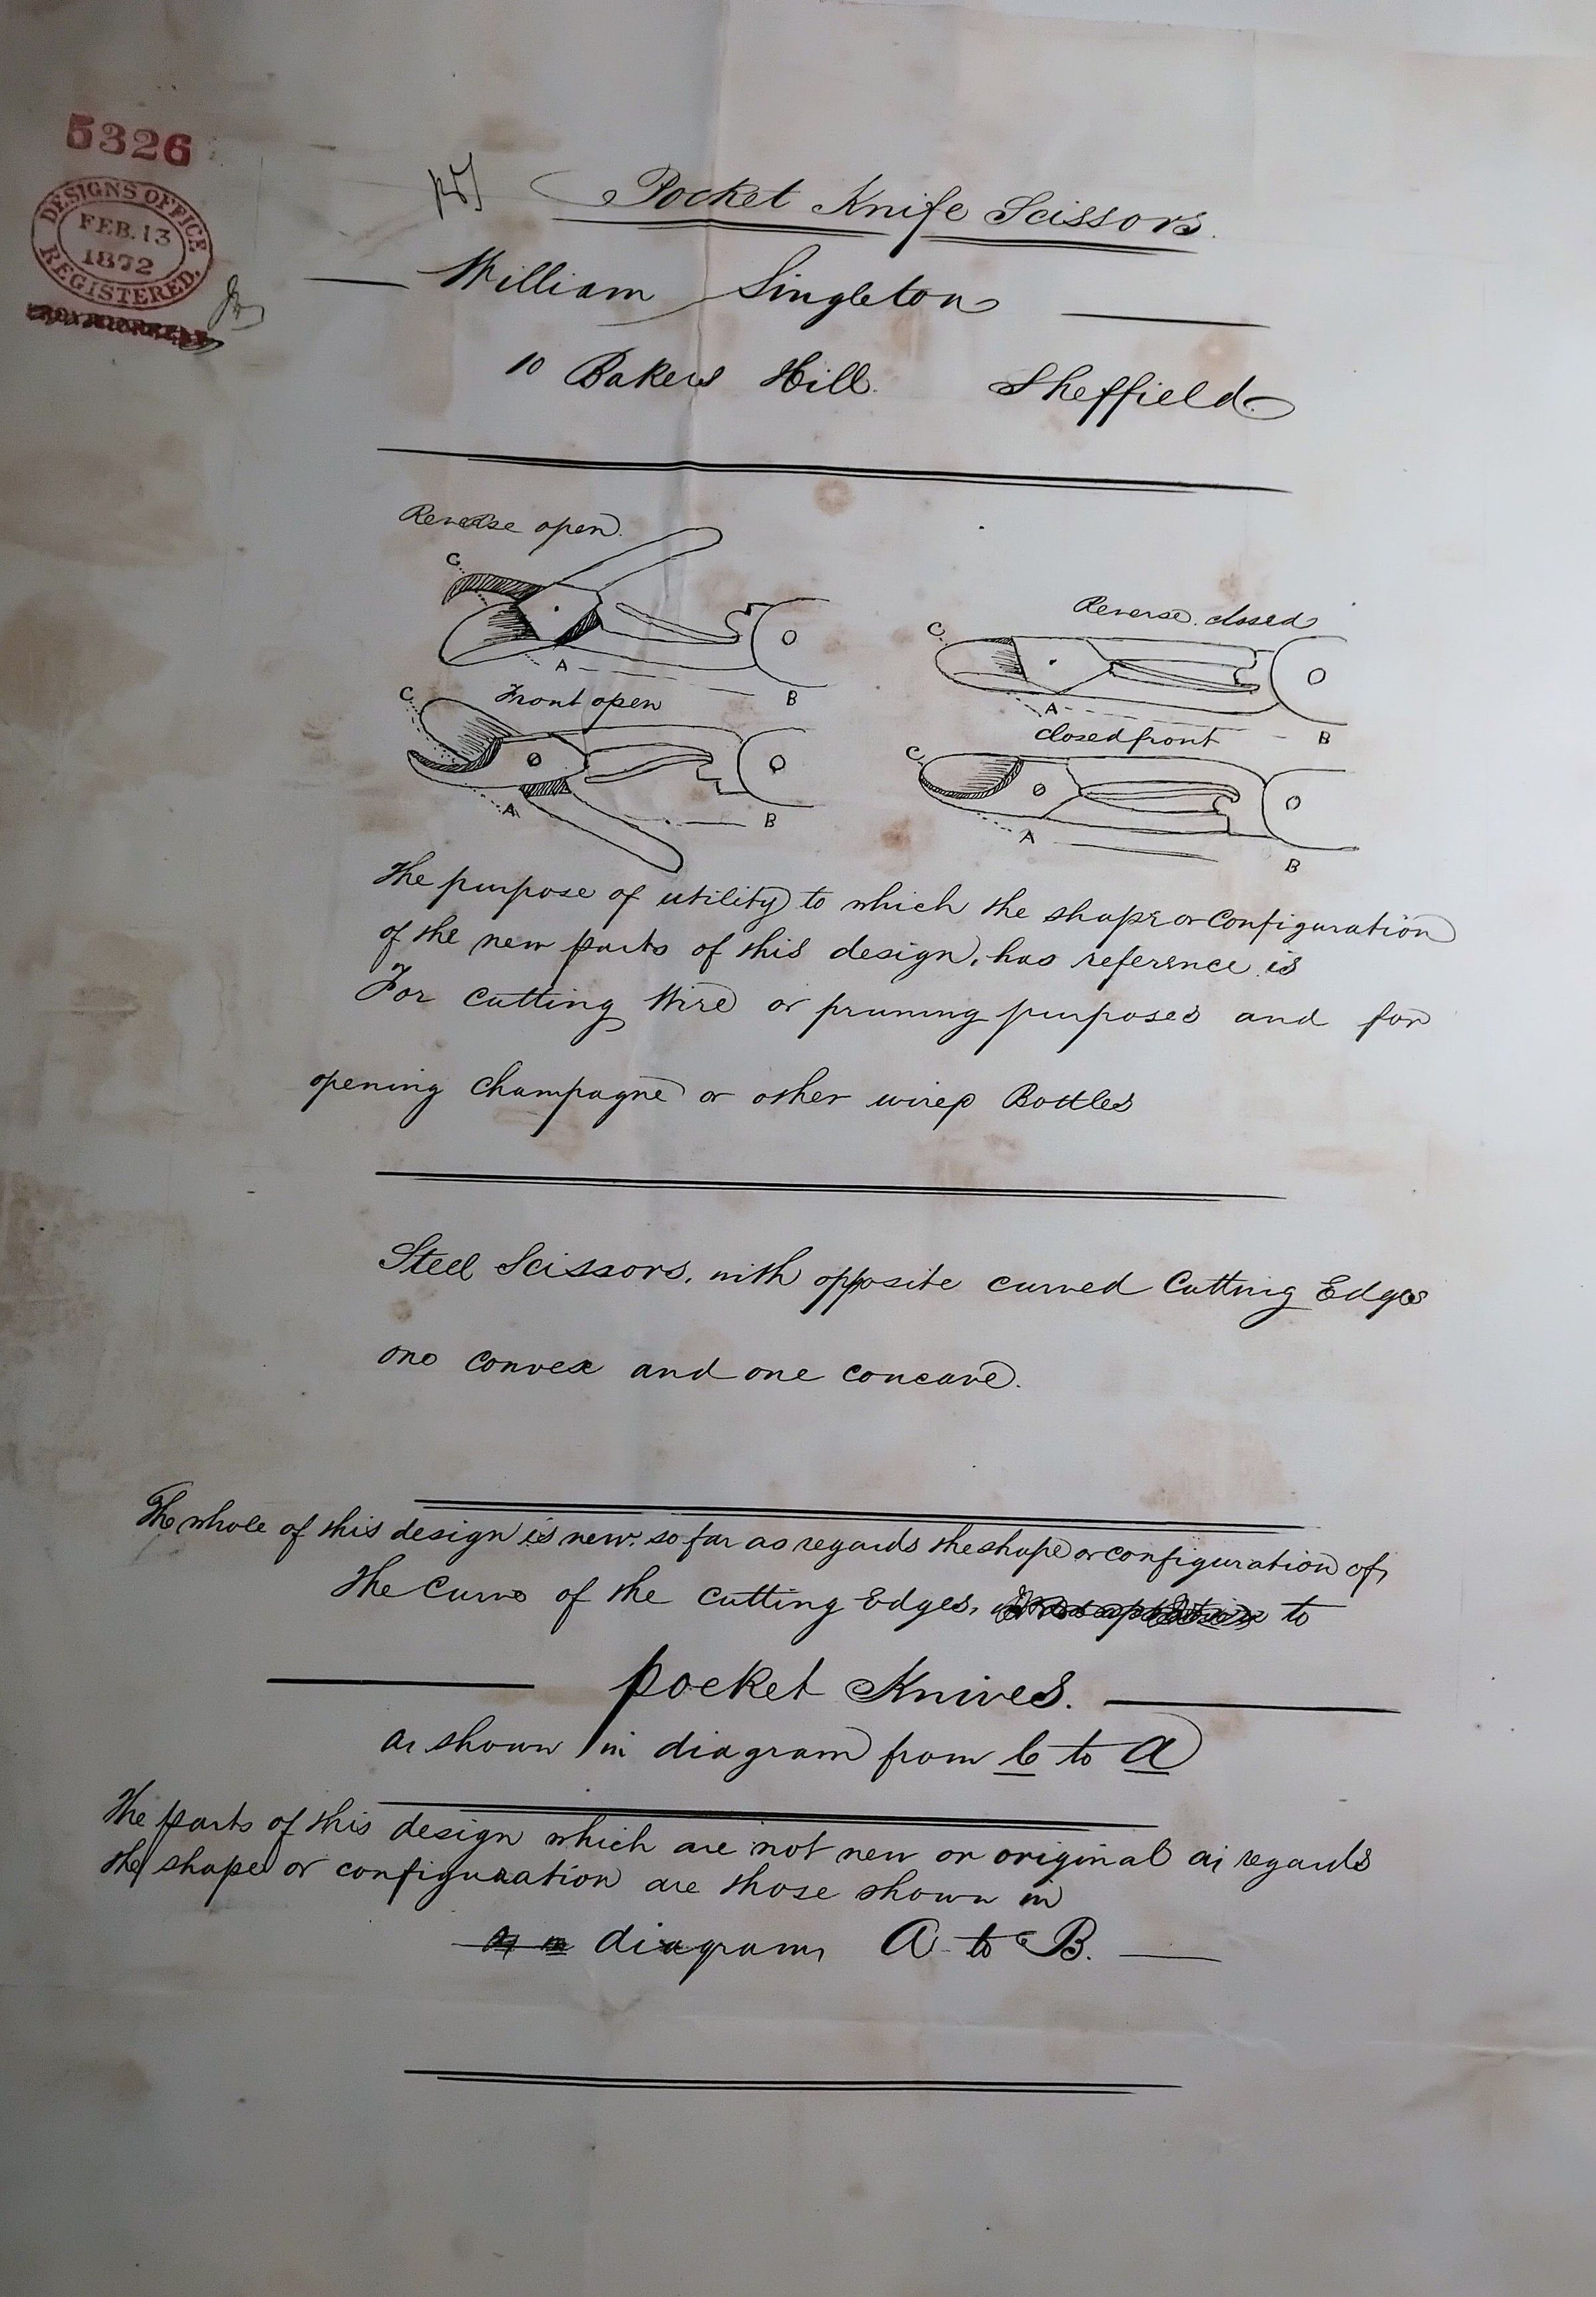 5326
DESIGNS OFFICE
FEB. 13
1872
REGISTERED.
Pocket Knife Scissors.
William Singleton
10 Bakers Hill. Sheffield.
Reverse open.
C
A
B
Reverse. closed
C
A
B
Front open
C
A
B
closed front
C
A
B
The purpose of utility to which the shape or Configuration
of the new parts of this design, has reference is
For Cutting Wire or pruning purposes and for
opening Champagne or other wired Bottles
Steel Scissors, with opposite curved Cutting Edges
one convex and one concave.
The whole of this design is new, so far as regards the shape or configuration of,
the Curve of the Cutting Edges, to
pocket Knives.
as shown in diagram from C to A
The parts of this design which are not new or original as regards
the shape or configuration are those shown in
diagram, A to B.